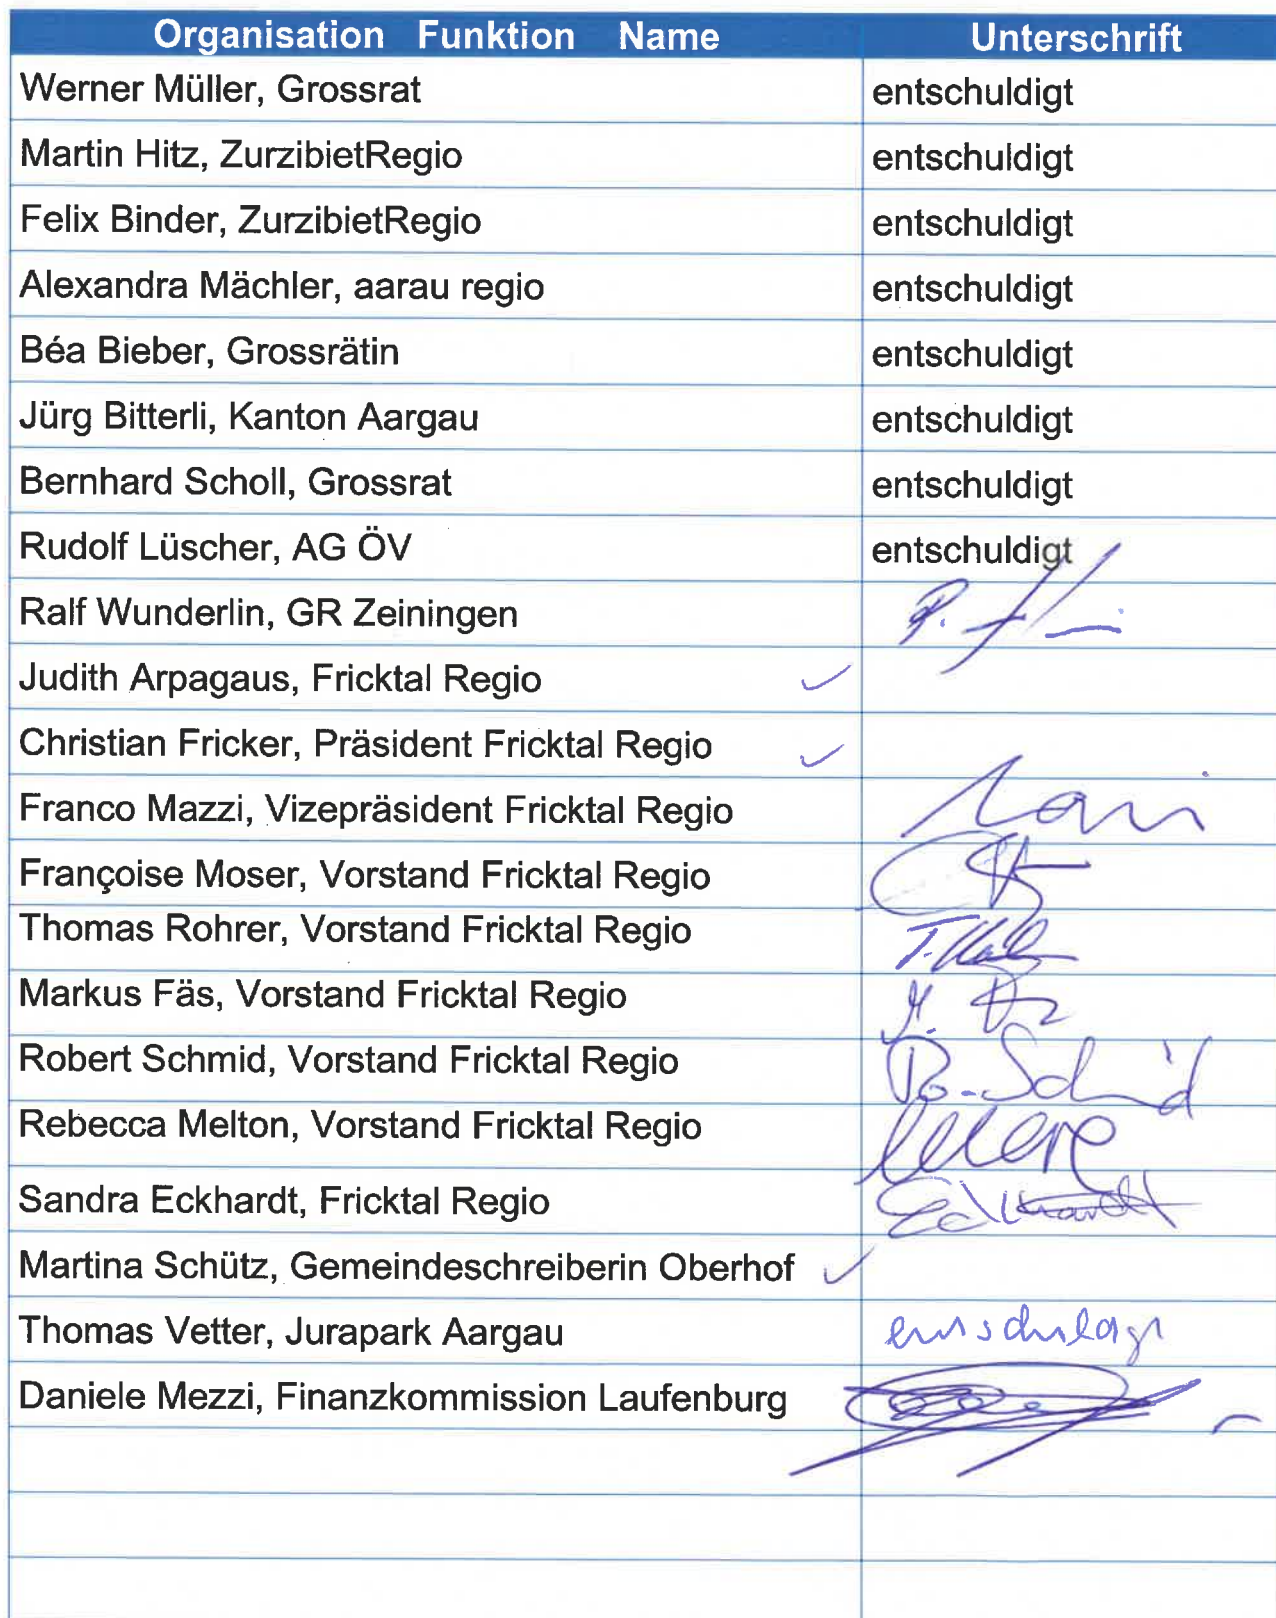 Organisation Funktion Name Unterschrift
Werner Müller, Grossrat entschuldigt
Martin Hitz, ZurzibietRegio entschuldigt
Felix Binder, ZurzibietRegio entschuldigt
Alexandra Mächler, aarau regio entschuldigt
Béa Bieber, Grossrätin entschuldigt
Jürg Bitterli, Kanton Aargau entschuldigt
Bernhard Scholl, Grossrat entschuldigt
Rudolf Lüscher, AG ÖV entschuldigt
Ralf Wunderlin, GR Zeiningen
Judith Arpagaus, Fricktal Regio ✓
Christian Fricker, Präsident Fricktal Regio ✓
Franco Mazzi, Vizepräsident Fricktal Regio
Françoise Moser, Vorstand Fricktal Regio
Thomas Rohrer, Vorstand Fricktal Regio
Markus Fäs, Vorstand Fricktal Regio
Robert Schmid, Vorstand Fricktal Regio R. Schmid
Rebecca Melton, Vorstand Fricktal Regio
Sandra Eckhardt, Fricktal Regio Eckhardt
Martina Schütz, Gemeindeschreiberin Oberhof ✓
Thomas Vetter, Jurapark Aargau
Daniele Mezzi, Finanzkommission Laufenburg